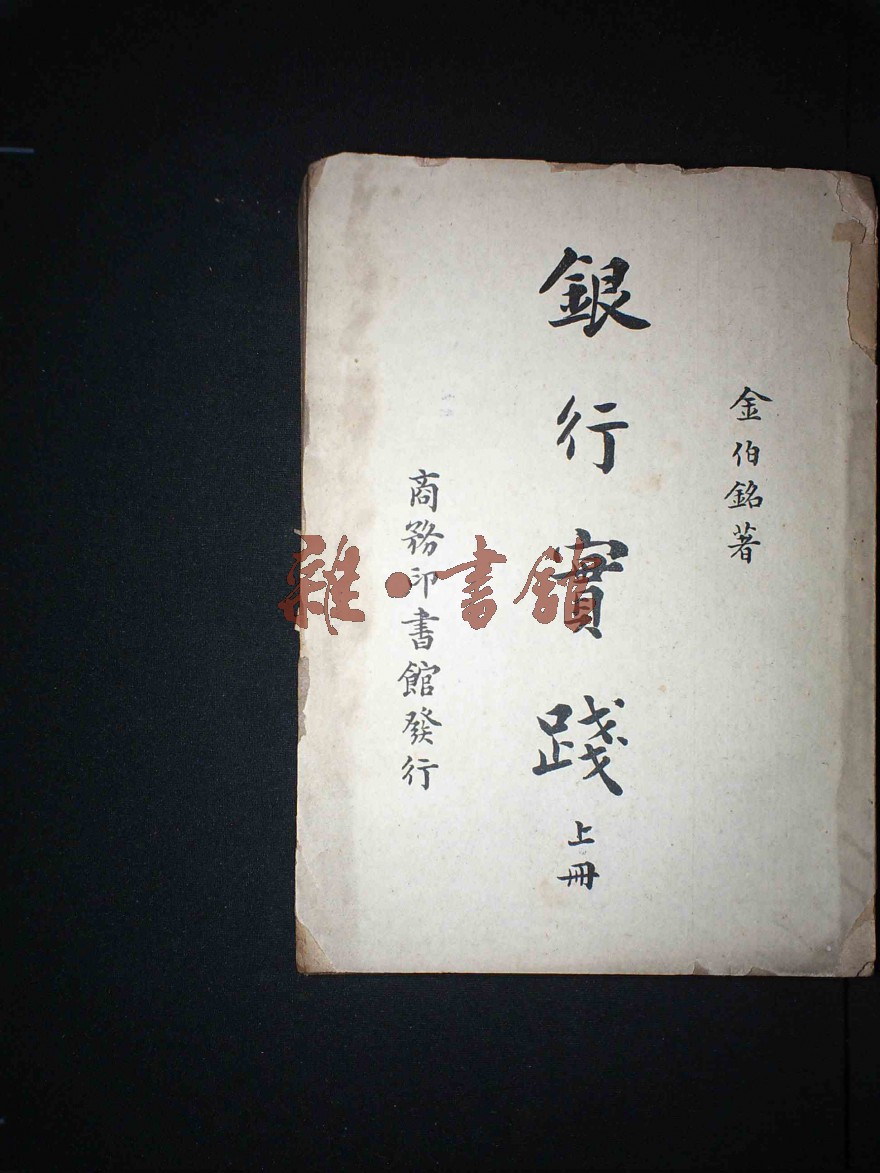 金伯銘著
銀行實踐 上冊
商務印書館發行
雜·書館